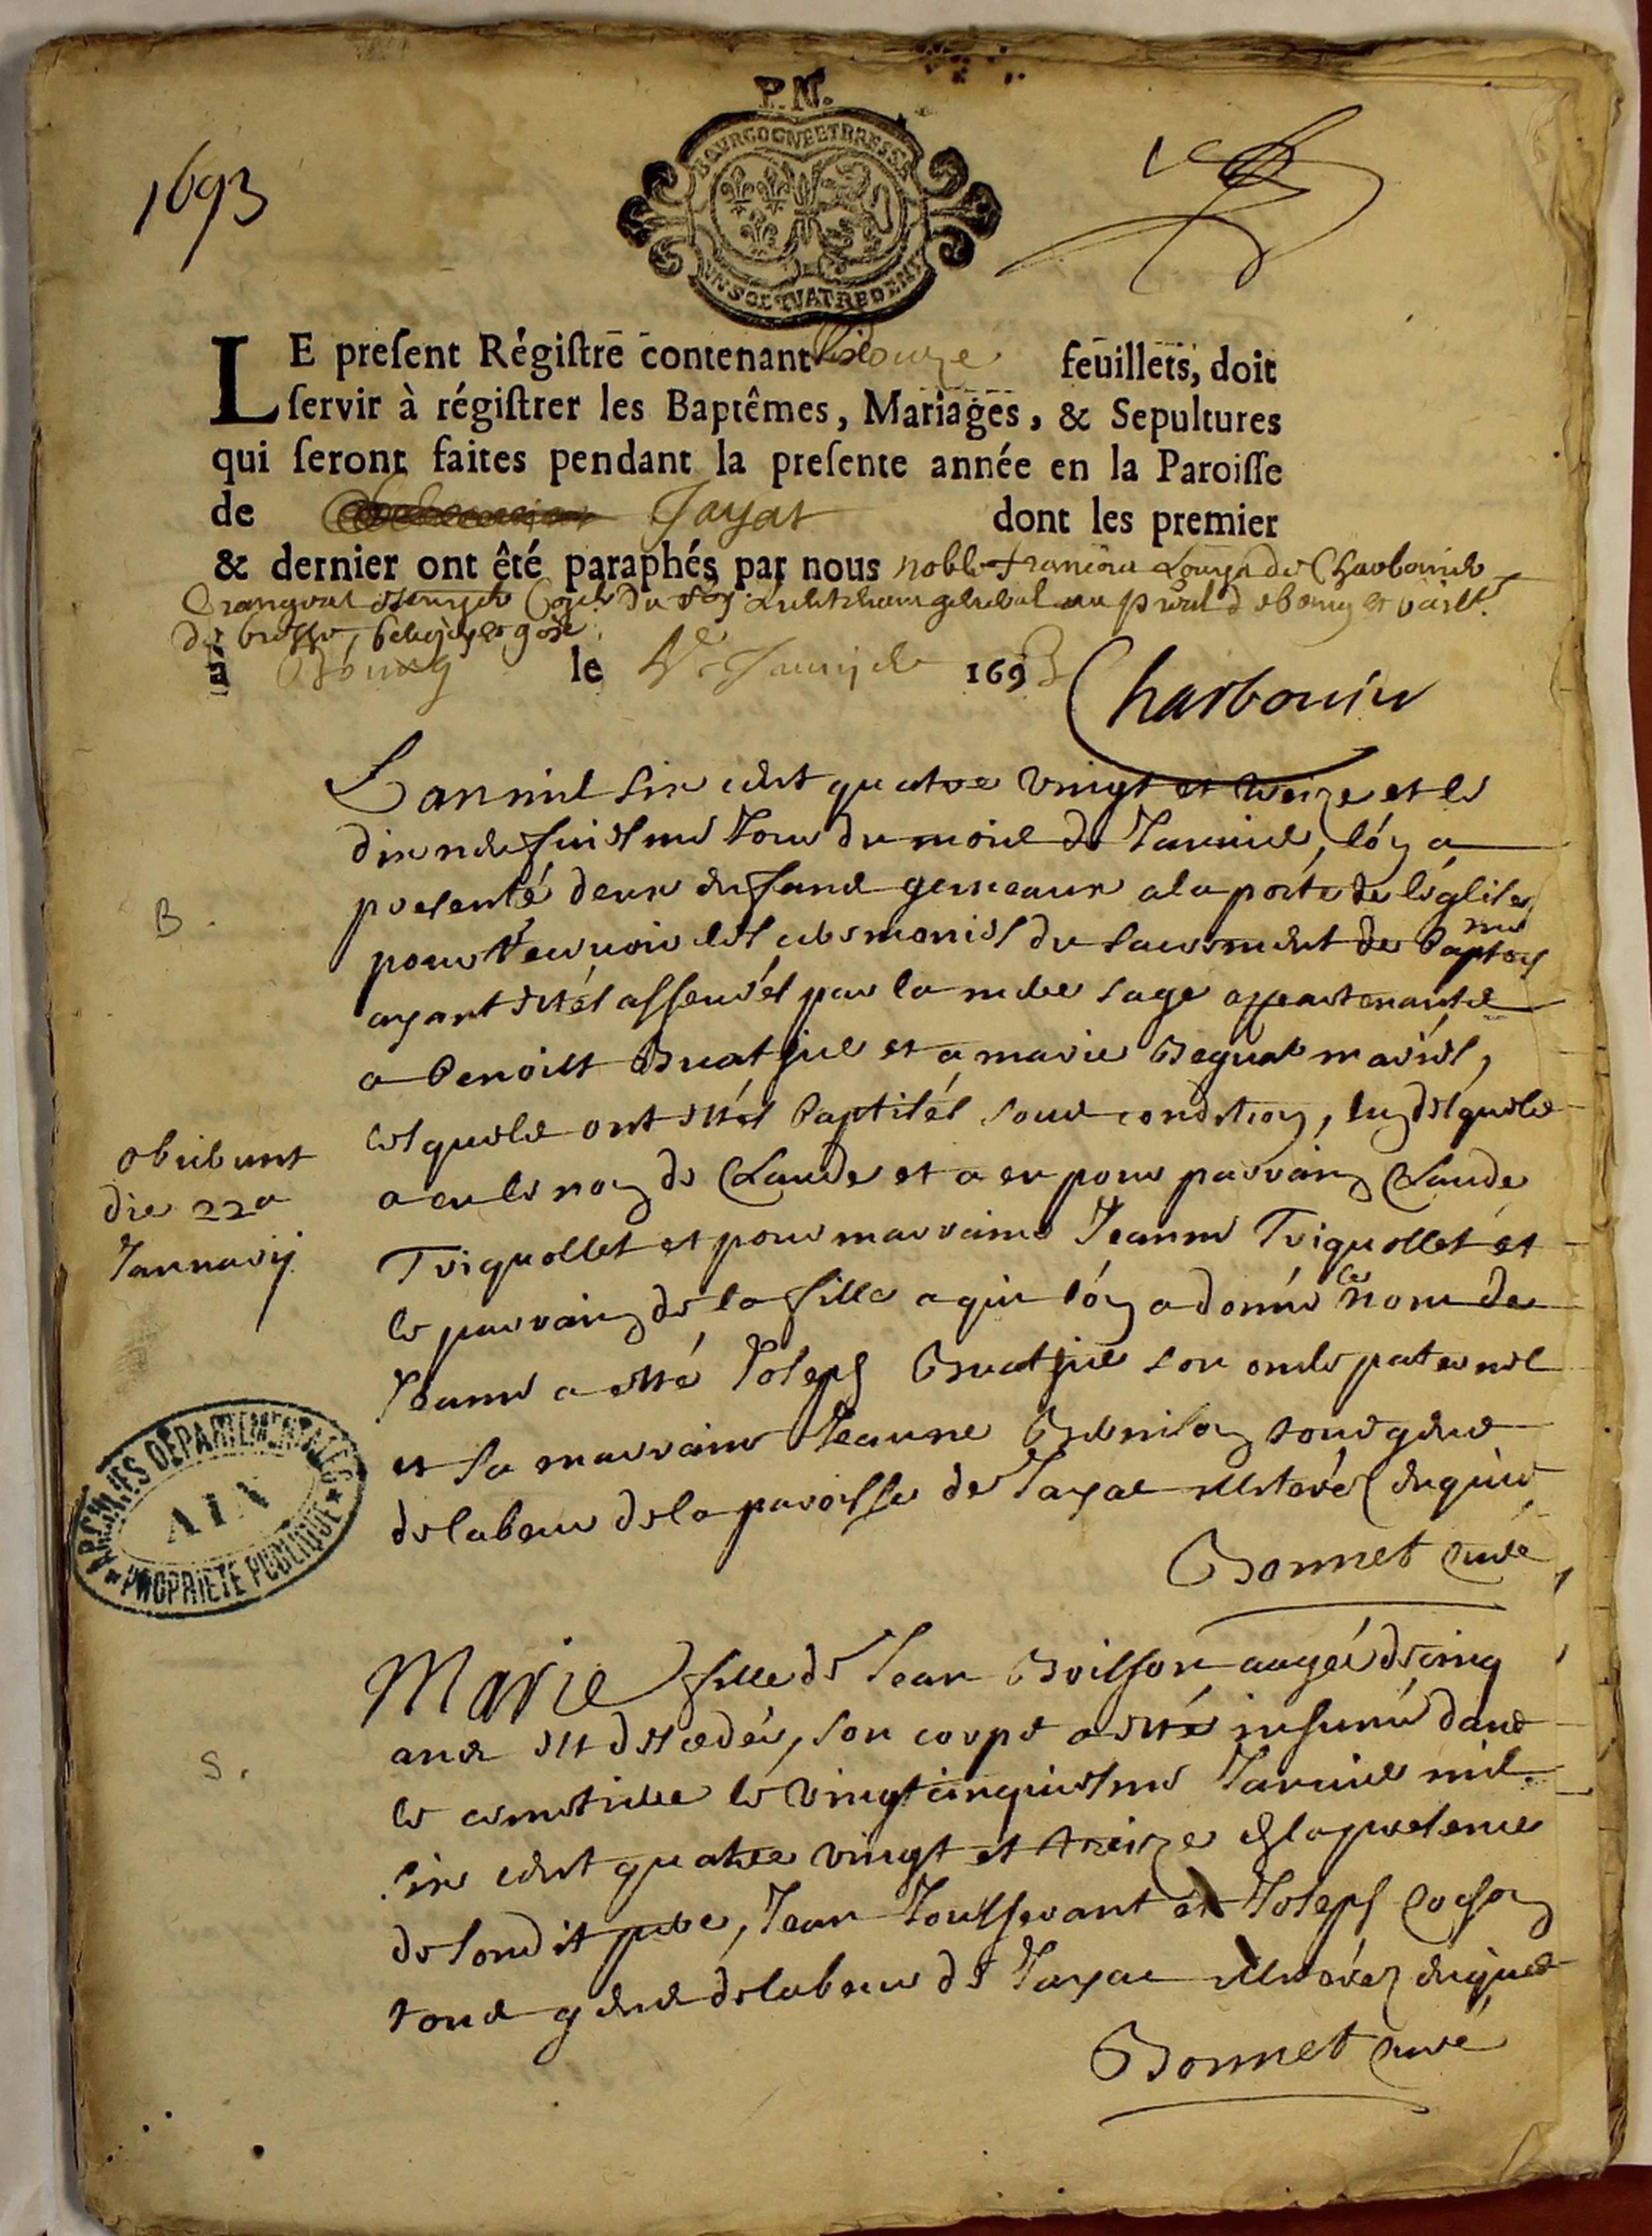 1693
P. N.
BOURGOGNE ET BRESSE
UN SOL QUATRE DEN
LE preſent Régiſtre contenant douze feuillets, doit
ſervir à régiſtrer les Baptêmes, Mariages, & Sepultures
qui ſeront faites pendant la preſente année en la Paroiſſe
de Jayat dont les premier
& dernier ont êté paraphés par nous noble françois Louys de Charbonnier
Crangeat Conser du Roy Lieutenant general au
de bresse, beugey et gex
Bourg le Janvier 1693
Charbonnier
B.
L'an mil six cent quatre vingt et treize et le
dix neufuiesme Jour du mois de Januier, l'on a
presenté deux enfans gemeaux a la porte de l'église
pour receuoir les ceremonies du sacrement de baptesme
ayant estés asseurés par la mere sage appartenants
a benoist Buatier et a marie Beguat mariés,
lesquels ont estés baptisés sous condition, l'un desquels
a eu le nom de Claude et a eu pour parrain Claude
Triquollet et pour marraine Jeanne Triquollet et
le parrain de la fille a qui l'on a donné le nom de
Jeanne a esté Joseph Buatier son oncle paternel
et sa marraine Jeanne tous gens
de labeur de la paroisse de Jayac illiterés enquis
Bonnet curé
obierunt
die 22a
Januarij
ARCHIVES DÉPARTEMENTALES
AIN
PROPRIÉTÉ PUBLIQUE
S.
Marie fille de Jean Boisson aagée de cinq
ans est decedée, son corps a esté inhumé dans
le cimetiere le vingt cinquiesme Januier mil
six cent quatre vingt et treize en la presence
de son dit pere, Jean Jousserant et Joseph Cochon
tous gens de labeur de Jayac illiterez enquis
Bonnet curé